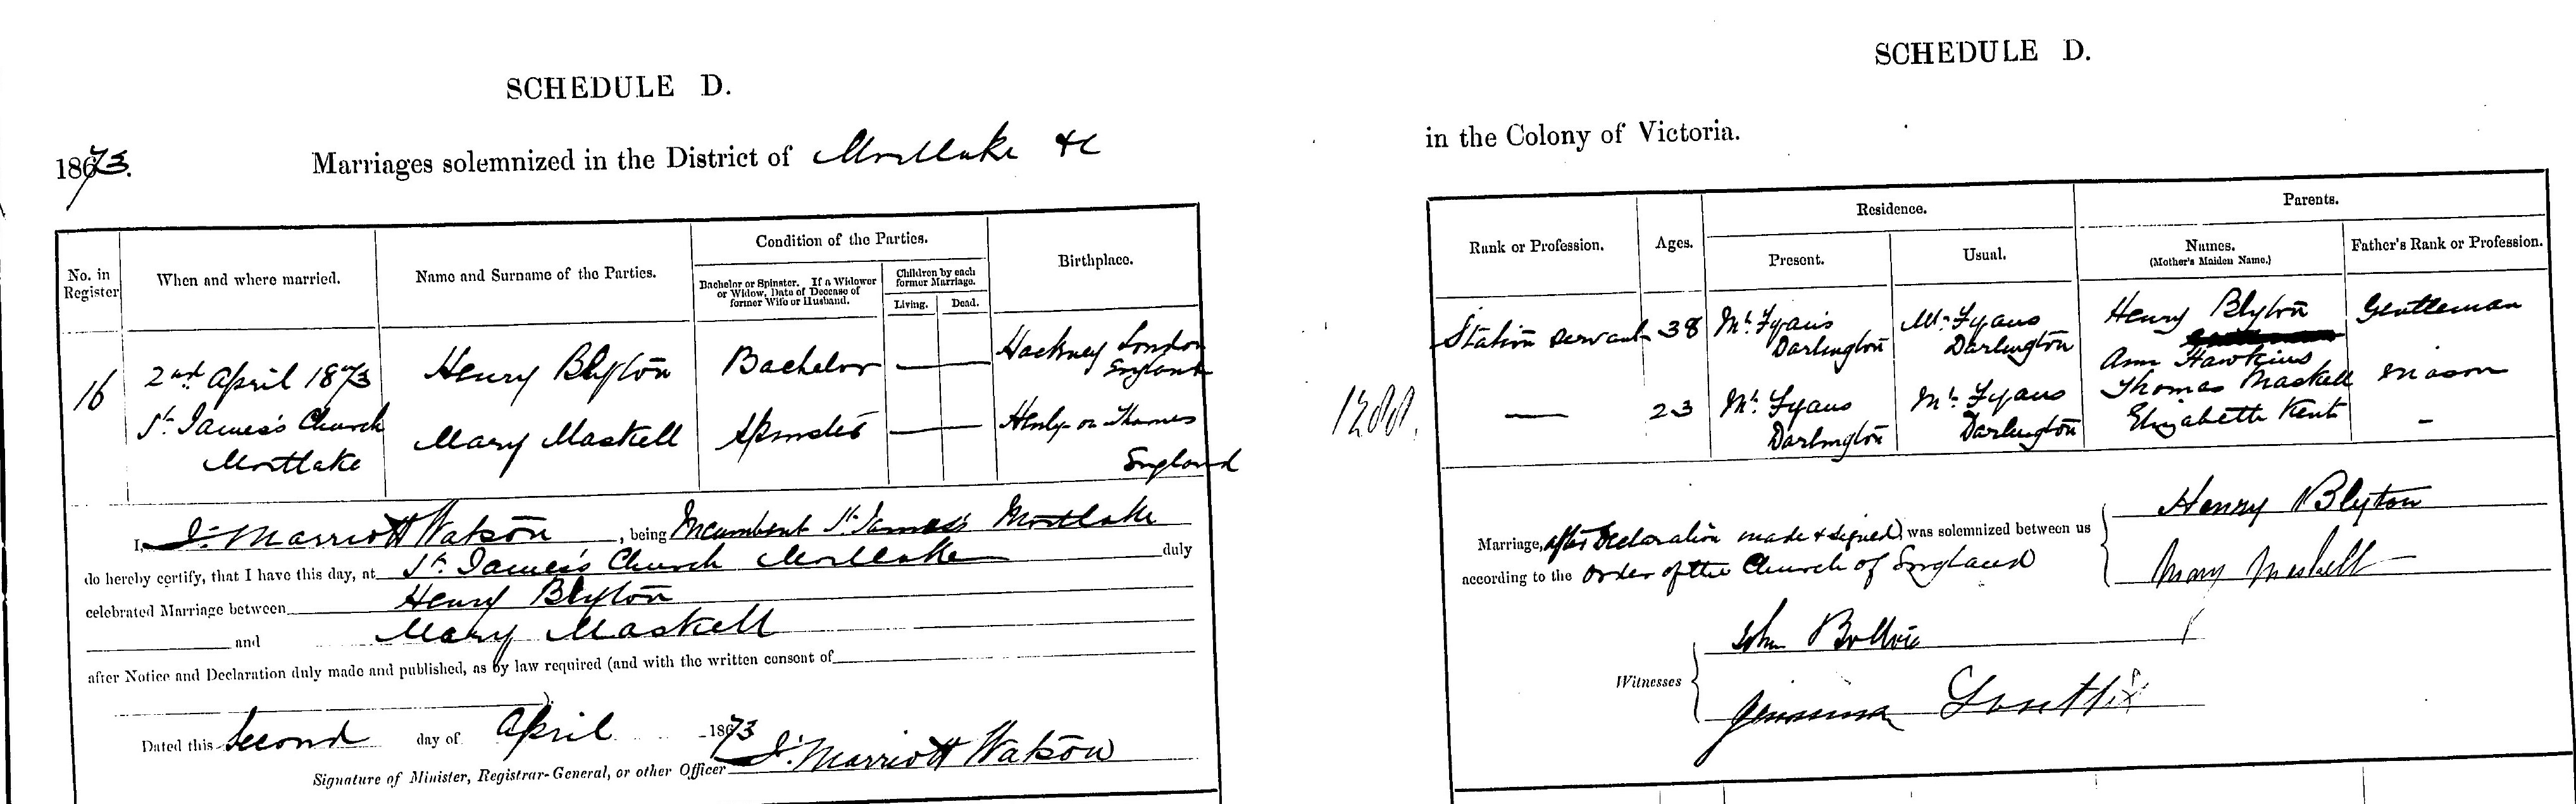 SCHEDULE D.
1873.
Marriages solemnized in the District of Mortlake &c
No. in Register
When and where married.
Name and Surname of the Parties.
Condition of the Parties.
Bachelor or Spinster. If a Widower or Widow, Date of Decease of former Wife or Husband.
Children by each former Marriage.
Living.
Dead.
Birthplace.
16
2nd April 1873
St. James's Church
Mortlake
Henry Blyton
Bachelor
Hackney London
England
Mary Maskell
Spinster
Henly-on-Thames
England
I, J. Marriott Watson, being Incumbent St. James's Mortlake
do hereby certify, that I have this day, at St. James's Church Mortlake duly
celebrated Marriage between Henry Blyton
and Mary Maskell
after Notice and Declaration duly made and published, as by law required (and with the written consent of
)
Dated this Second day of April 1873
Signature of Minister, Registrar-General, or other Officer J. Marriott Watson
SCHEDULE D.
in the Colony of Victoria.
Rank or Profession.
Ages.
Residence.
Present.
Usual.
Parents.
Names.
(Mother's Maiden Name.)
Father's Rank or Profession.
Station Servant
38
Mr. Fyans
Darlington
Mr. Fyans
Darlington
Henry Blyton
Ann Hawkins
Gentleman
23
Mr. Fyans
Darlington
Mr. Fyans
Darlington
Thomas Maskell
Elizabeth Kent
Mason
1200.
Marriage, after Declaration made & signed, was solemnized between us
according to the Order of the Church of England
Henry Blyton
Mary Maskell
Witnesses
John
Jemima